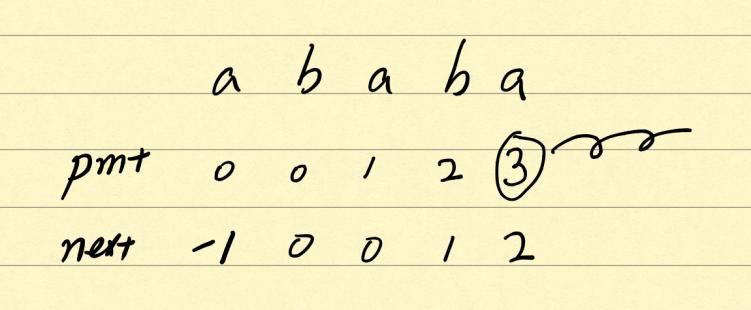 a b a b a
pmt 0 0 1 2 3
next -1 0 0 1 2